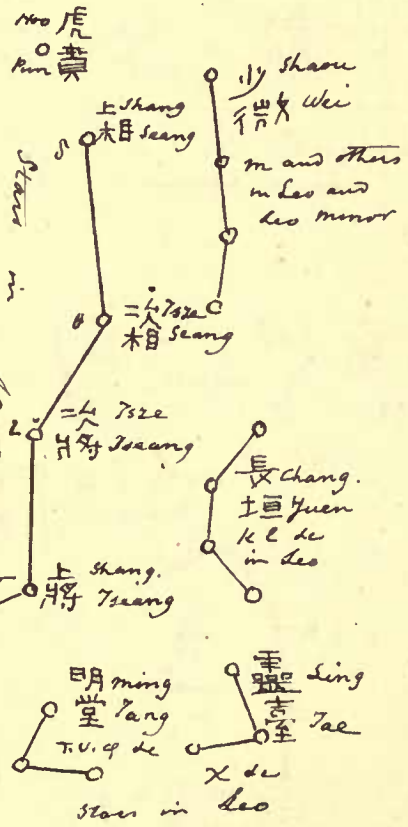 Hoo 虎
Pun 賁
少 Shaou
微 Wei
上 Shang
相 Seang
δ
m and others
in Leo and
Leo Minor
Stars in
θ
次 Tsze
相 Seang
ι
次 Tsze
將 Tseang
長 Chang.
垣 Yuen
K l &c
in Leo
上 Shang.
將 Tseang
明 Ming
堂 Tang
τ. υ. φ &c
靈 Ling
臺 Tae
χ &c
Stars in Leo